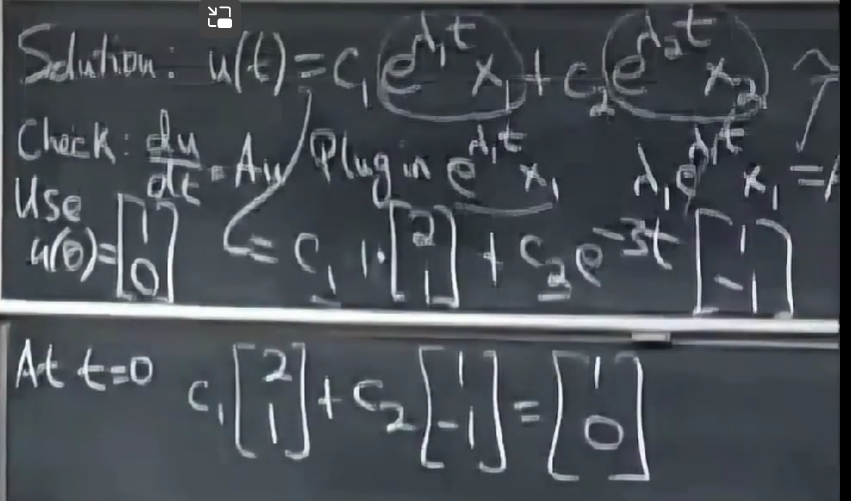 Solution: u(t) = c₁ e^{λ₁t} x₁ + c₂ e^{λ₂t} x₂
Check: du/dt = Au Plug in e^{λ₁t} x₁ λ₁e^{λ₁t} x₁ =
Use
u(0) = [1 0] = c₁ 1·[2 1] + c₂ e^{-3t} [1 -1]
At t=0 c₁ [2 1] + c₂ [1 -1] = [1 0]